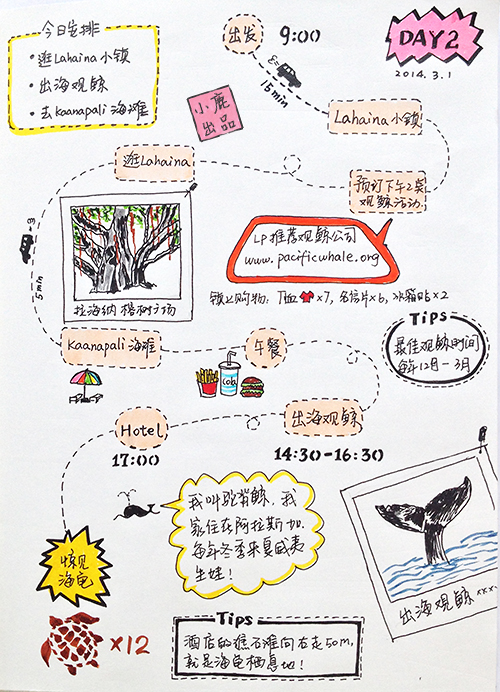 今日安排
·逛Lahaina小锁
·出海观鲸
·去Kaanapali海滩
出发 9:00
DAY2
2014.3.1
15min
小鹿
出品
Lahaina小锁
逛Lahaina
预订下午2点
观鲸活动
5min
LP推荐观鲸公司
www.pacificwhale.org
拉海纳 榕树广场
锁上购物: T恤×7, 名信片×6, 冰箱贴×2
Tips
最佳观鲸时间
每年12月-3月
Kaanapali海滩
午餐
cola
Hotel
17:00
出海观鲸
14:30-16:30
我叫驼背鲸,我
家住在阿拉斯加.
每年冬季来夏威夷
生娃!
惊见
海龟
×12
出海观鲸 ×××
Tips
酒店的礁石滩向右走50m,
就是海龟栖息地!